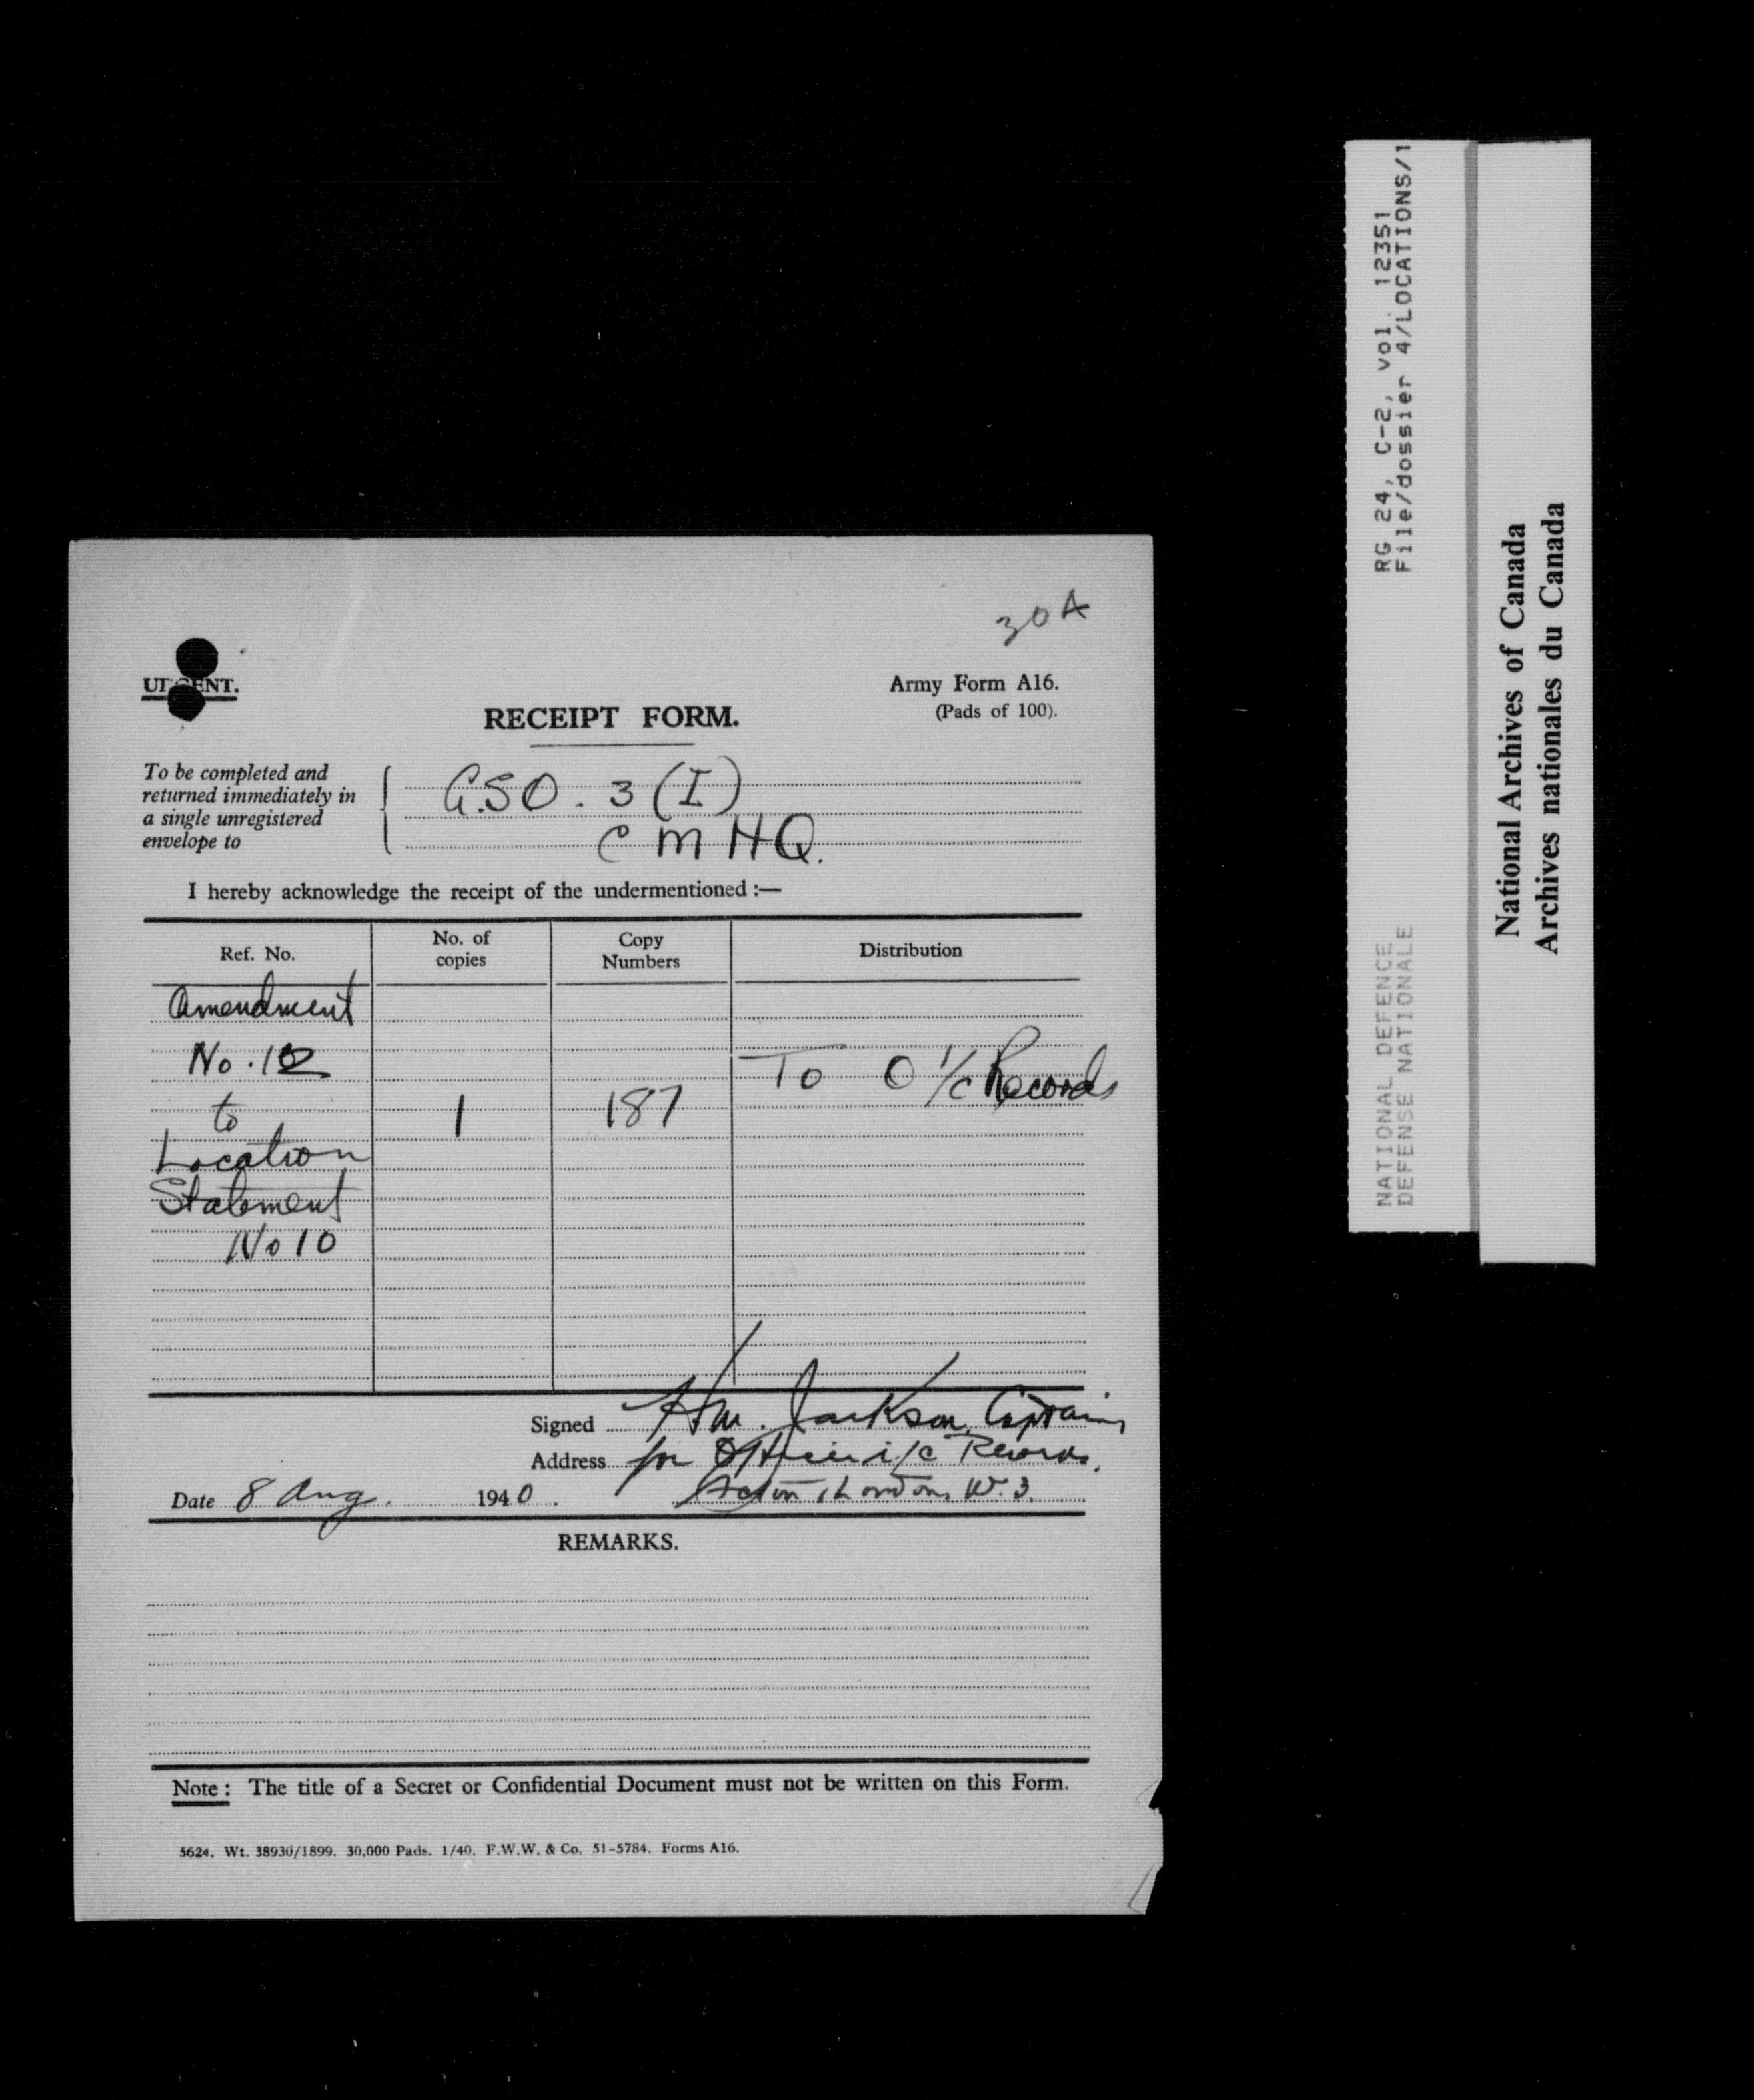 30A
URGENT.
Army Form A16.
(Pads of 100).
RECEIPT FORM.
To be completed and
returned immediately in
a single unregistered
envelope to
G.S.O. 3 (I)
C M H Q.
I hereby acknowledge the receipt of the undermentioned :—
Ref. No.
No. of
copies
Copy
Numbers
Distribution
Amendment
No.
to
Location
Statement
No 10
1
187
To O i/c Records
Signed H.W. Jackson, Captain,
Address for Officer i/c Records,
Acton, London, W.3.
Date 8 Aug. 1940.
REMARKS.
Note : The title of a Secret or Confidential Document must not be written on this Form.
5624. Wt. 38930/1899. 30,000 Pads. 1/40. F.W.W. & Co. 51-5784. Forms A16.
RG 24, C-2, vol. 12351
File/dossier 4/LOCATIONS/1
NATIONAL DEFENCE
DEFENSE NATIONALE
National Archives of Canada
Archives nationales du Canada